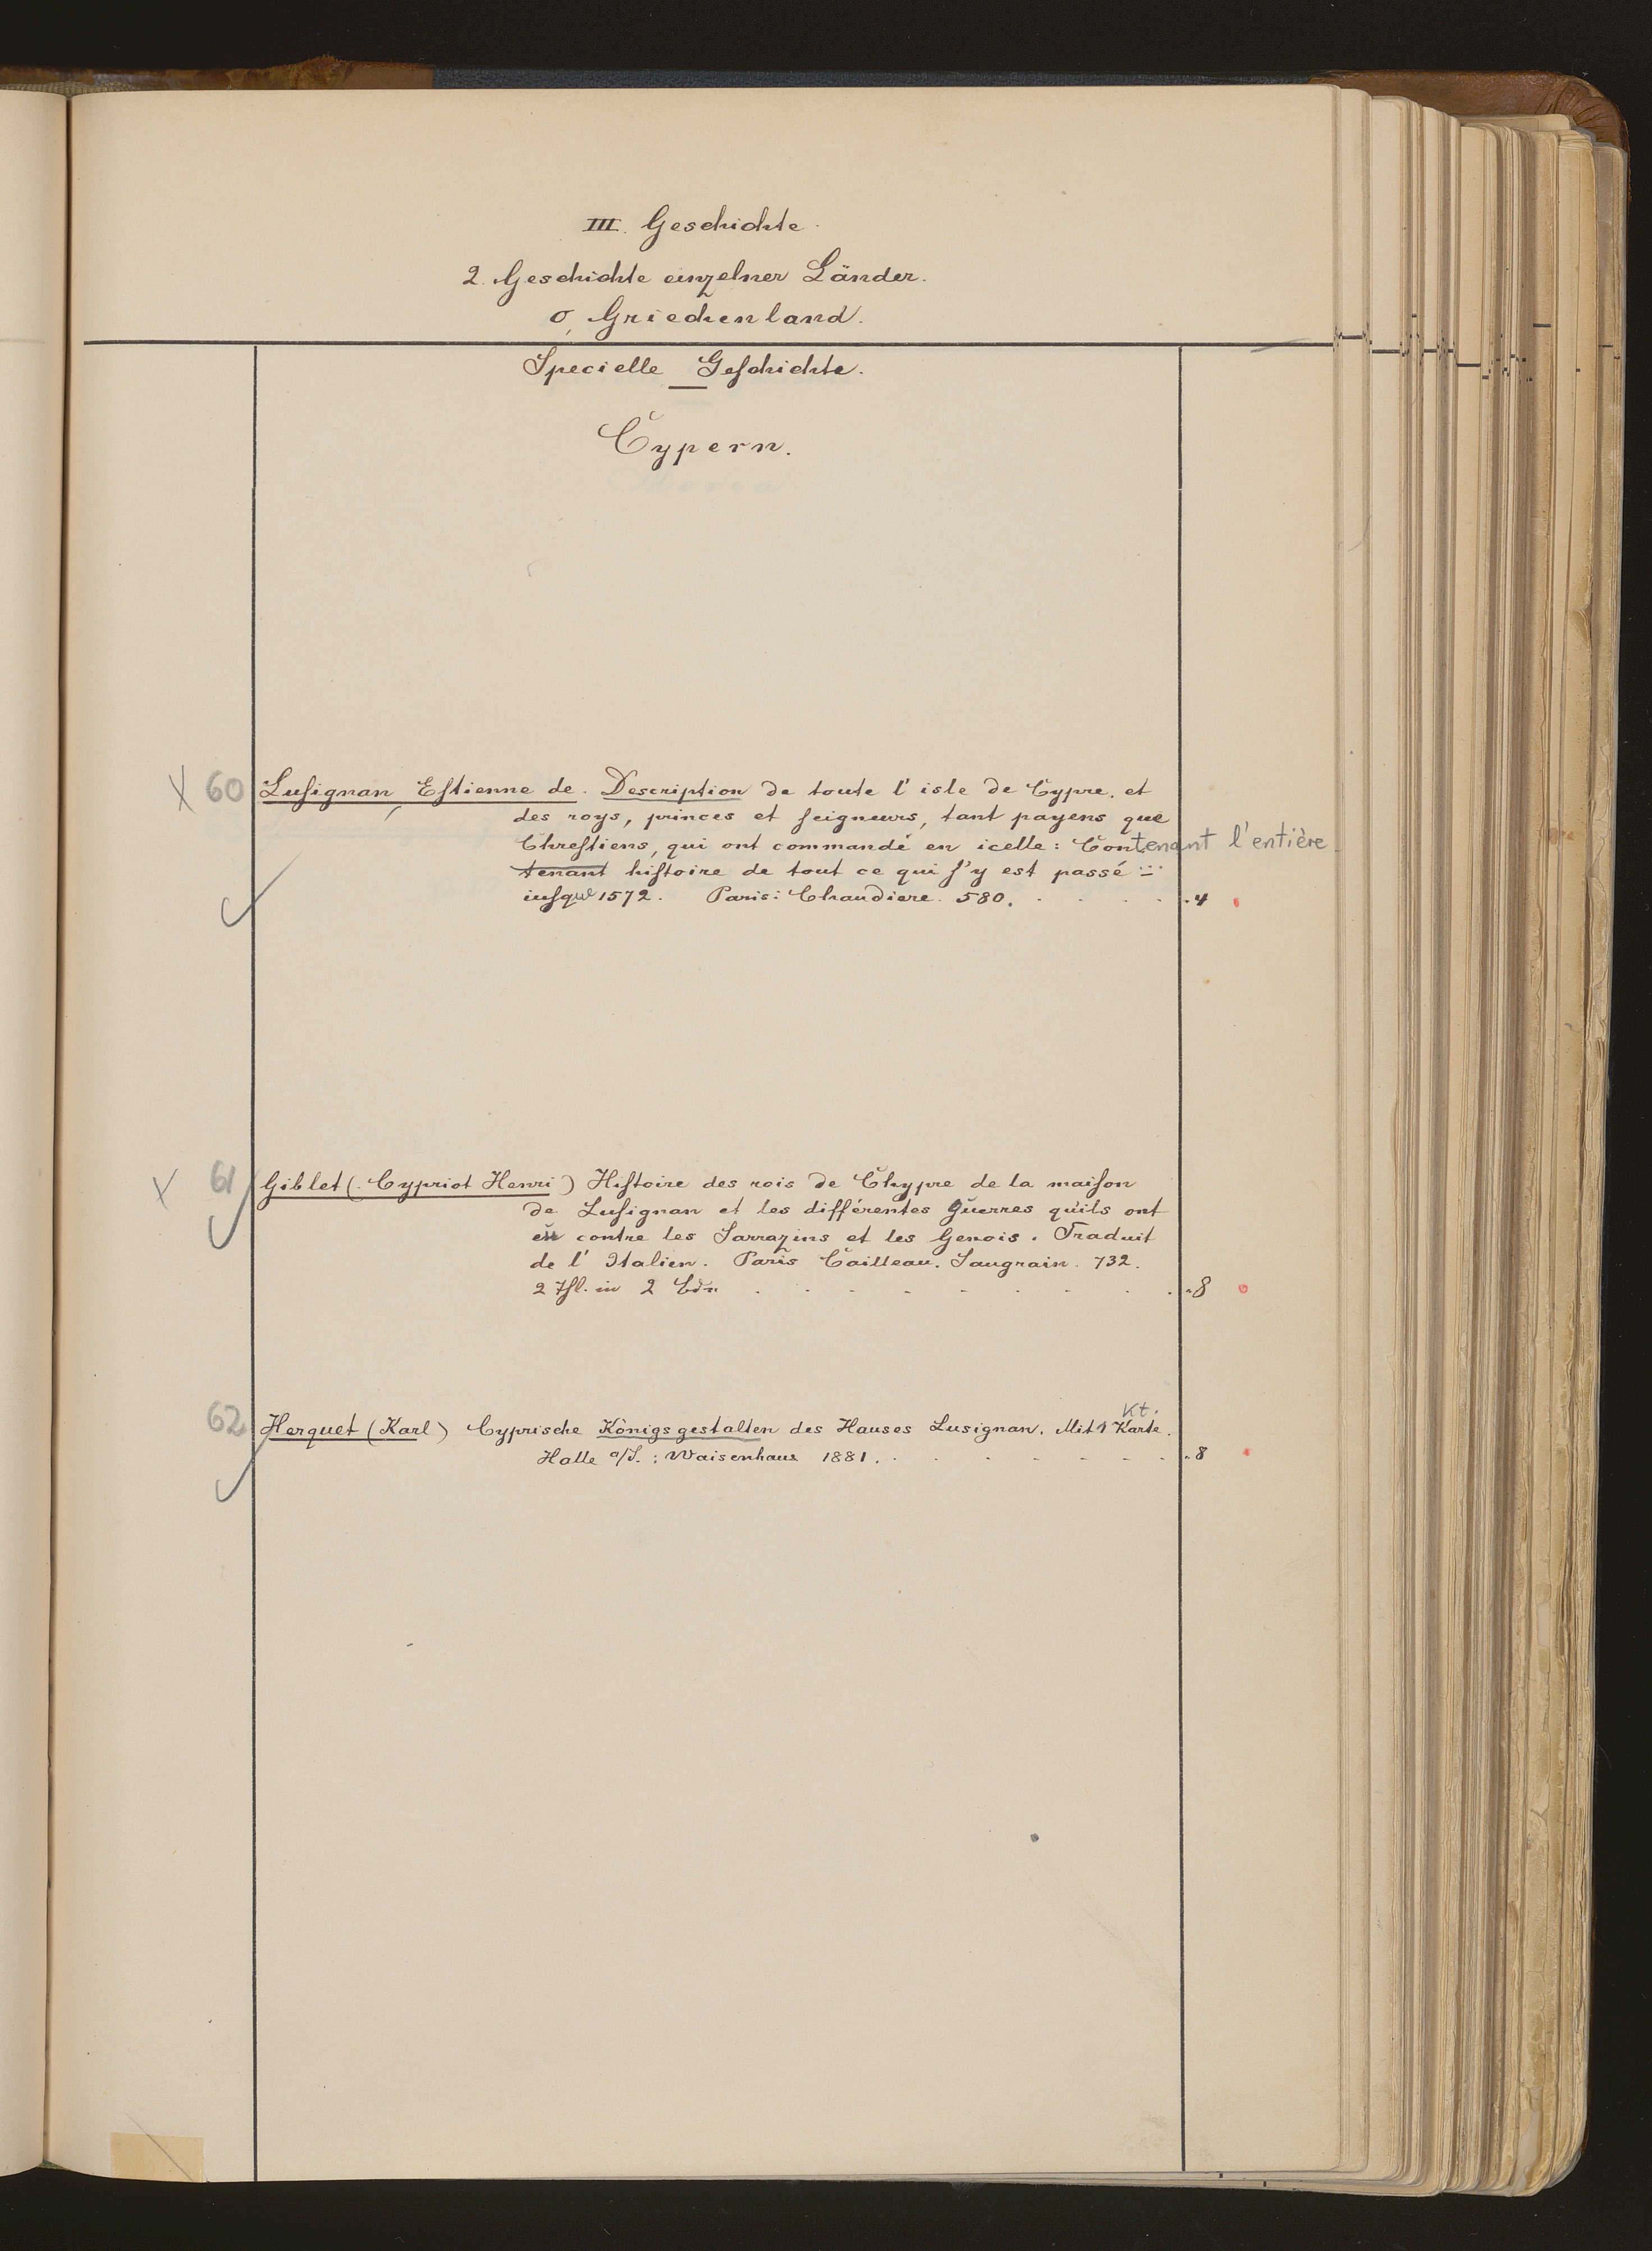 III. Geschichte.
2. Geschichte einzelner Länder.
o, Griechenland.
Specielle Geſchichte.
Cypern.
60 Luſignan, Eſtienne de. Description de toute l' isle de Cypre. et
des roys, princes et ſeigneurs, tant payens que
Chreſtiens, qui ont commandé en icelle: Contenant l'entière
tenant hiſtoire de tout ce qui ſ'y est passé ...
iusque 1572. Paris: Chaudiere. 580. . . . . . 4
61 Giblet (Cypriot Henri) Hiſtoire des rois de Chypre de la maiſon
de Luſignan et les différentes Guerres qu'ils ont
eü contre les Sarrazins et les Genois. Traduit
de l' Italien. Paris Cailleau. Saugrain. 732.
2 Thl. in 2 Bdn . . . . . . . . . 8
62 Herquet (Karl) Cyprische Königsgestalten des Hauses Lusignan. Mit 1 Karte. Kt.
Halle a/S. : Waisenhaus 1881. . . . . . . . 8